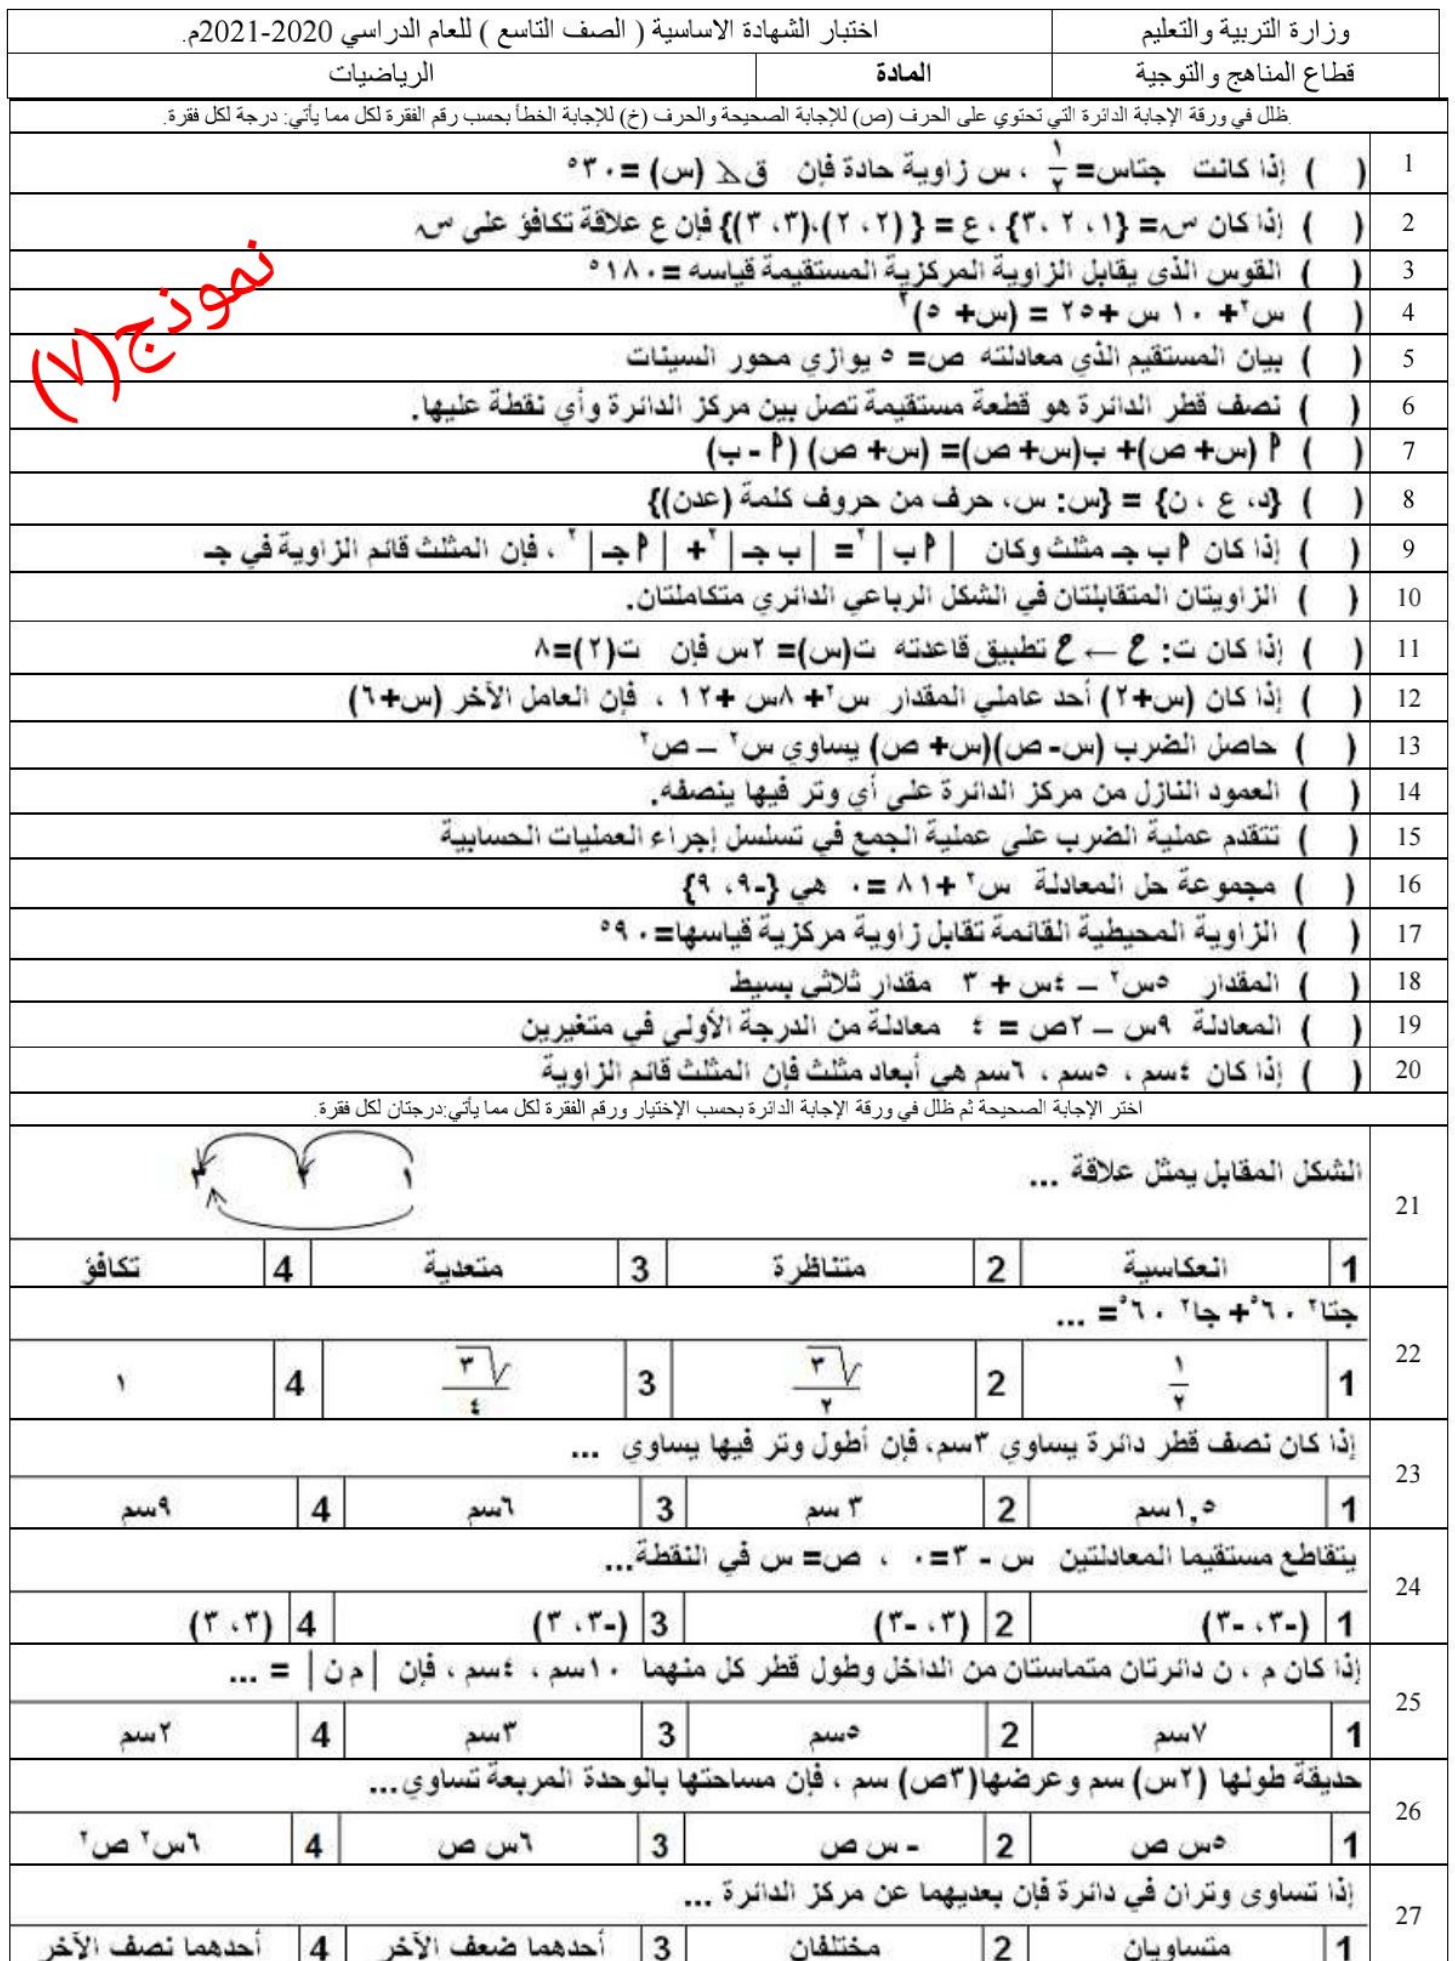 وزارة التربية والتعليم
اختبار الشهادة الاساسية ( الصف التاسع ) للعام الدراسي 2020-2021م.
قطاع المناهج والتوجية
المادة
الرياضيات
ظلل في ورقة الإجابة الدائرة التي تحتوي على الحرف (ص) للإجابة الصحيحة والحرف (خ) للإجابة الخطأ بحسب رقم الفقرة لكل مما يأتي: درجة لكل فقرة.
نموذج(٧)
1 ( ) إذا كانت جتاس= ١/٢ ، س زاوية حادة فإن ق∡ (س) =٣٠°
2 ( ) إذا كان س= {١، ٢ ،٣} ، ع = { (٢، ٢)،(٣، ٣)} فإن ع علاقة تكافؤ على س
3 ( ) القوس الذي يقابل الزاوية المركزية المستقيمة قياسه =١٨٠°
4 ( ) س²+ ١٠ س +٢٥ = (س+ ٥)²
5 ( ) بيان المستقيم الذي معادلته ص= ٥ يوازي محور السينات
6 ( ) نصف قطر الدائرة هو قطعة مستقيمة تصل بين مركز الدائرة وأي نقطة عليها.
7 ( ) أ (س+ ص)+ ب(س+ ص)= (س+ ص) (أ - ب)
8 ( ) {د، ع ، ن} = {س: س، حرف من حروف كلمة (عدن)}
9 ( ) إذا كان أ ب جـ مثلث وكان |أ ب|² = |ب جـ|² + |أ جـ|² ، فإن المثلث قائم الزاوية في جـ
10 ( ) الزاويتان المتقابلتان في الشكل الرباعي الدائري متكاملتان.
11 ( ) إذا كان ت: ح ← ح تطبيق قاعدته ت(س)= ٢س فإن ت(٢)=٨
12 ( ) إذا كان (س+٢) أحد عاملي المقدار س²+ ٨س +١٢ ، فإن العامل الآخر (س+٦)
13 ( ) حاصل الضرب (س- ص)(س+ ص) يساوي س² – ص²
14 ( ) العمود النازل من مركز الدائرة على أي وتر فيها ينصفه.
15 ( ) تتقدم عملية الضرب على عملية الجمع في تسلسل إجراء العمليات الحسابية
16 ( ) مجموعة حل المعادلة س² +٨١ =٠ هي {-٩، ٩}
17 ( ) الزاوية المحيطية القائمة تقابل زاوية مركزية قياسها=٩٠°
18 ( ) المقدار ٥س² – ٤س + ٣ مقدار ثلاثي بسيط
19 ( ) المعادلة ٩س – ٢ص = ٤ معادلة من الدرجة الأولى في متغيرين
20 ( ) إذا كان ٤سم ، ٥سم ، ٦سم هي أبعاد مثلث فإن المثلث قائم الزاوية
اختر الإجابة الصحيحة ثم ظلل في ورقة الإجابة الدائرة بحسب الإختيار ورقم الفقرة لكل مما يأتي:درجتان لكل فقرة.
21 الشكل المقابل يمثل علاقة ...
١ ٢ ٣
1 انعكاسية 2 متناظرة 3 متعدية 4 تكافؤ
22 جتا² ٦٠°+ جا² ٦٠°= ...
1 ١/٢ 2 √٣/٢ 3 √٣/٤ 4 ١
23 إذا كان نصف قطر دائرة يساوي ٣سم، فإن أطول وتر فيها يساوي ...
1 ١,٥سم 2 ٣ سم 3 ٦سم 4 ٩سم
24 يتقاطع مستقيما المعادلتين س - ٣=٠ ، ص= س في النقطة...
1 (-٣، -٣) 2 (٣، -٣) 3 (-٣، ٣) 4 (٣، ٣)
25 إذا كان م ، ن دائرتان متماستان من الداخل وطول قطر كل منهما ١٠سم ، ٤سم ، فإن |م ن| = ...
1 ٧سم 2 ٥سم 3 ٣سم 4 ٢سم
26 حديقة طولها (٢س) سم وعرضها(٣ص) سم ، فإن مساحتها بالوحدة المربعة تساوي...
1 ٥س ص 2 - س ص 3 ٦س ص 4 ٦س² ص²
27 إذا تساوى وتران في دائرة فإن بعديهما عن مركز الدائرة ...
1 متساويان 2 مختلفان 3 أحدهما ضعف الآخر 4 أحدهما نصف الآخر